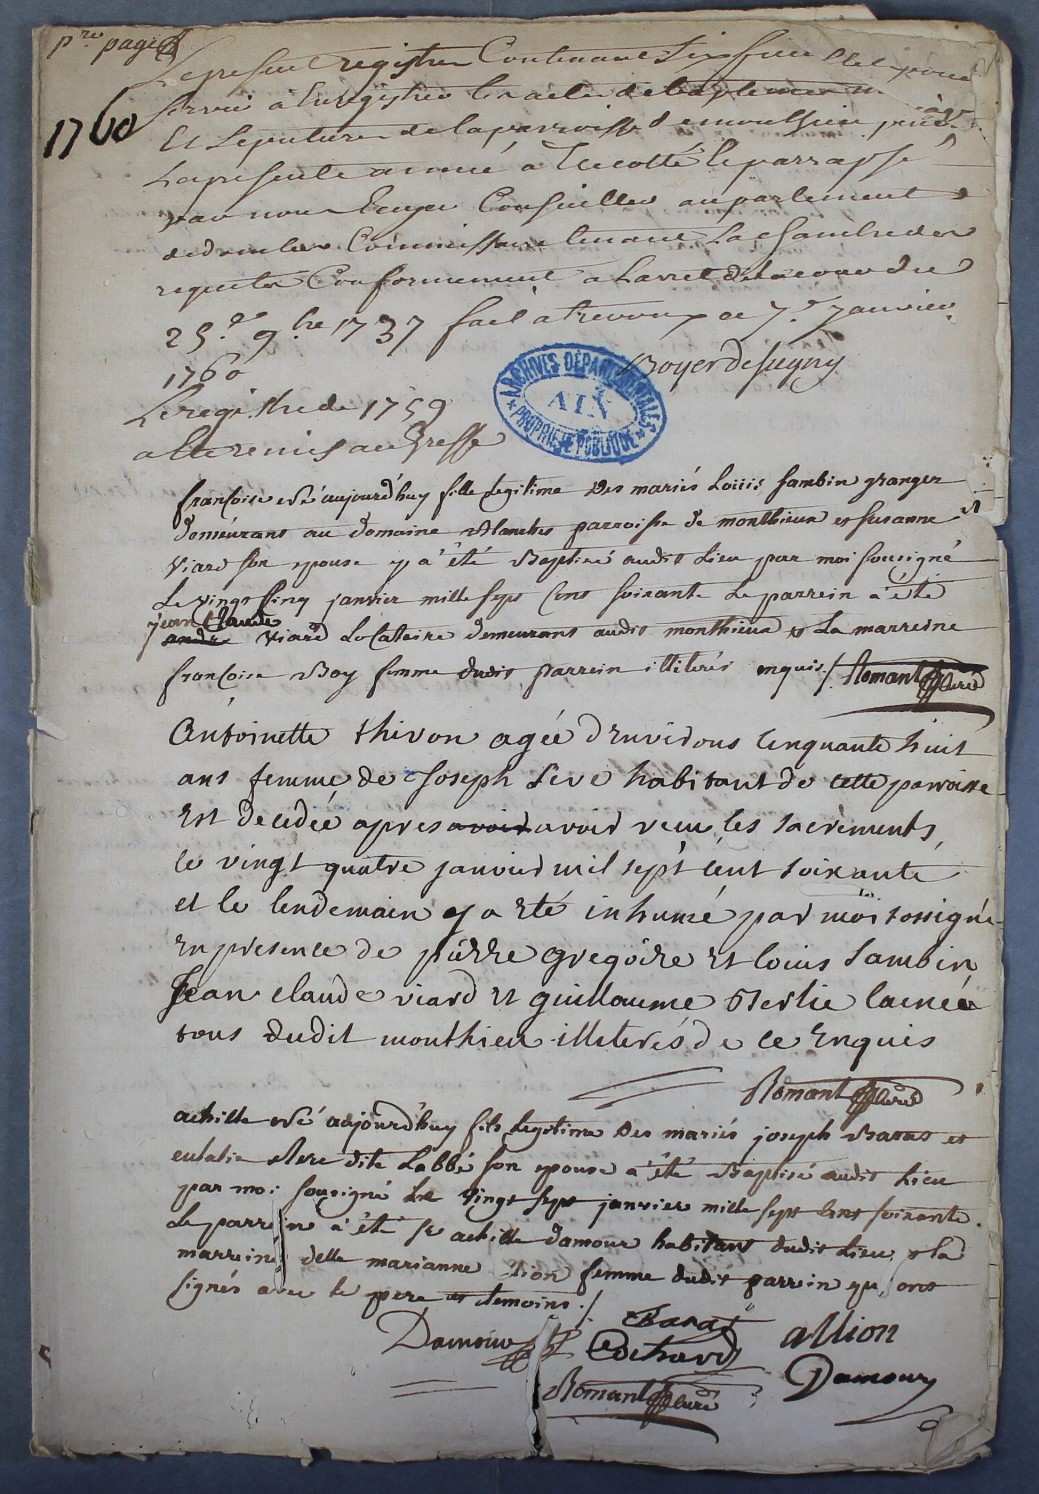 p.re page
1760
Le present registre Contenant Six feuillets pour
servir a Enregistrer Les actes de baptemes
Et Sepulture de la parroisse de monthieu
La presente année a Eté cotté et parraphé
par nous Conseiller au parlement
de dombes Commissaire tenant La Chambre des
requetes Conformement a Larret de la cour du
25.e 9.bre 1737 fait a trevoux ce 7.e Janvier
1760
Boyer de Sugny
Le registre de 1759
a été remis au Greffe
ARCHIVES DÉPARTEMENTALES
AIN
PROPRIÉTÉ PUBLIQUE
françoise née aujourd'huy fille legitime Des mariés Loüis sambin granger
Demeurans au Domaine Blanches parroisse de monthieux et susanne
Viard son epouse y à été Baptisé audit Lieu par moi sousigné
Le vingt sinq janvier mille sept cens soixante Le parrein à été
jean Claude
andre viard Locataire demeurans audit monthieux & La marreine
françoise Boy femme dudit parrein illiterés enquis ./. Romant Curé
Antoinette thivon agée d'Environs cenquante huit
ans femme de Joseph Seve habitant de cette parroisse
Est decedée apres avoir avoir recu les sacrements,
le vingt quatre janvier mil sept cent soixante
et le lendemain y a eté inhumé par moi sossigné
En presence de pierre gregoire et louis sambin
Jean claude viard et guillaume Berlie lainée
tous dudit monthieu illeterés de ce Enquis
Romant Curé
achille né aujourd'huy fils legitime Des mariés joseph Baras et
eulalie dite Labbé son epouse a été Baptisé audit Lieu
par moi sousigné Le vingt sept janvier mille sept cens soixante.
Le parrein à été sr achille damour habitant dudit Lieu & la
marreine delle marianne lion femme dudit parrein qui ont
signés avec le pere et temoins ./.
Baras
Damour
allion
Damour
Romant Curé